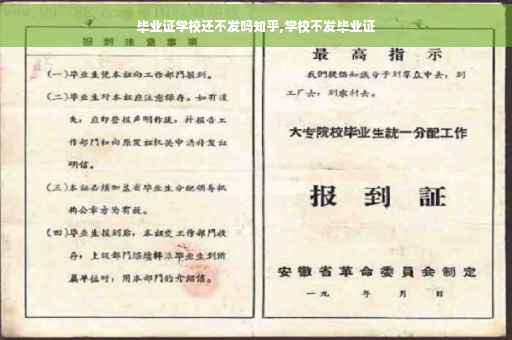 毕业证学校还不发吗知乎,学校不发毕业证
报到注意事项
(一)毕业生凭本证向工作部门报到。
(二)毕业生对本证应注意保存。如有遗
失,应即登报声明作废,并报告工
作部门和向原发证机关申请补发证
明信。
(三)本证必须加盖省毕业生分配领导机
构公章方为有效。
(四)毕业生报到后,本证交工作部门收
存;上级部门继续转派毕业生到所
属单位时,用本部门的介绍信。
最高指示
我们提倡知识分子到羣众中去,到
工厂去,到农村去。
大专院校毕业生統一分配工作
报到証
安徽省革命委員会制定
一九 年 月 日